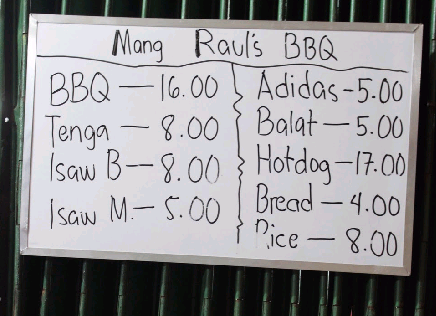 Mang Raul's BBQ
BBQ — 16.00
Tenga — 8.00
Isaw B — 8.00
Isaw M. — 5.00
Adidas - 5.00
Balat — 5.00
Hotdog — 17.00
Bread — 4.00
Rice — 8.00